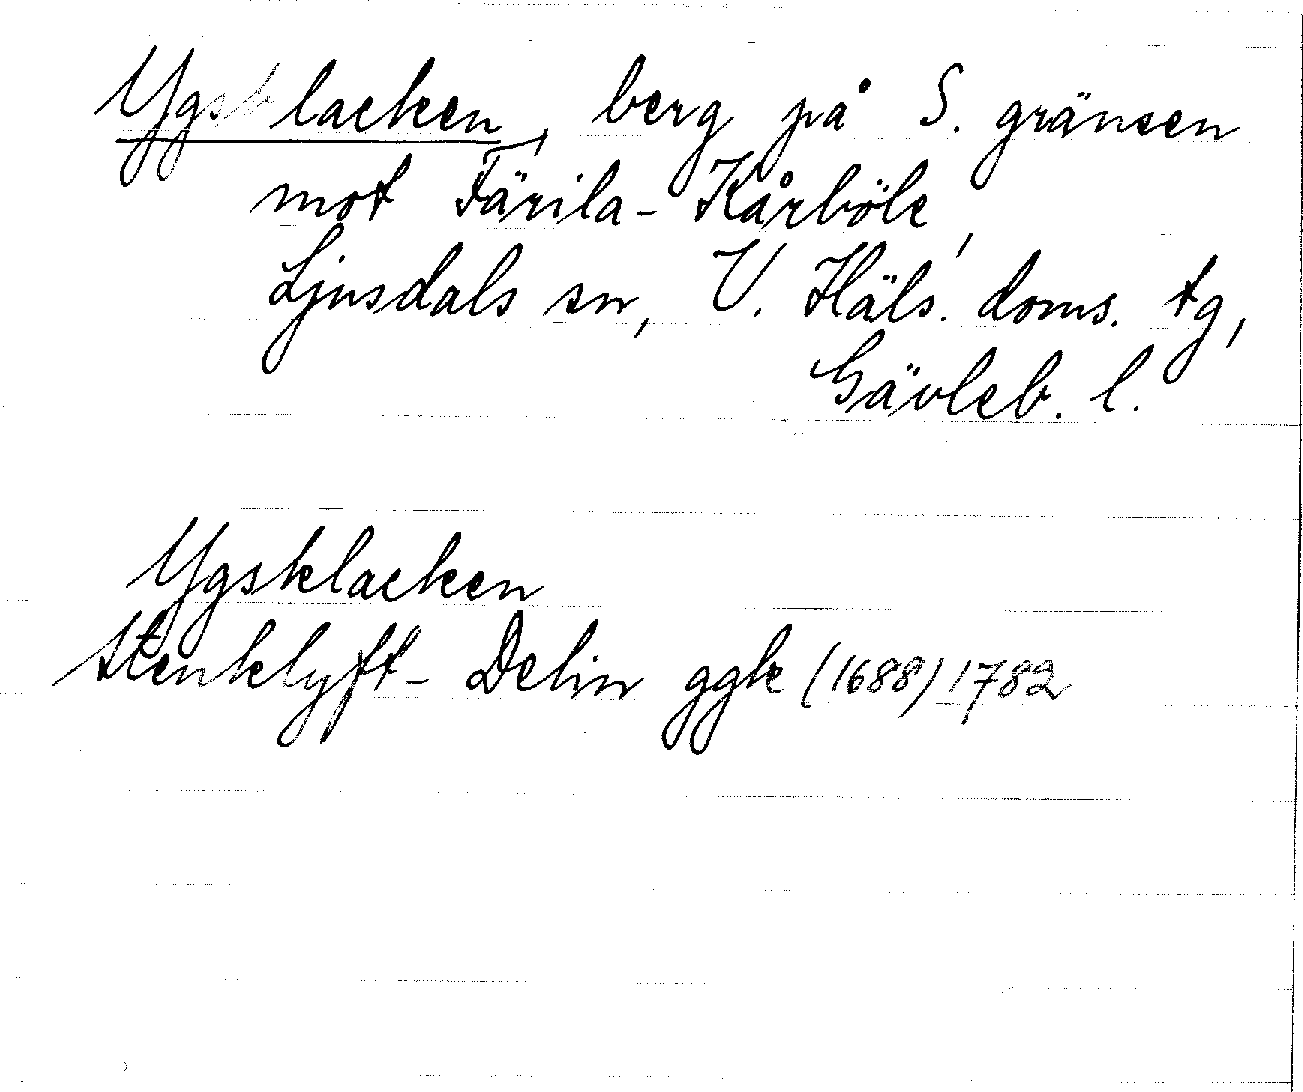 Ygsklacken, berg på S. gränsen
mot Färila-Kårböle,
Ljusdals sn, V. Häls. doms. tg,
Gävleb. l.
Ygsklacken
Stenklyft- Delin ggk (1688) 1782